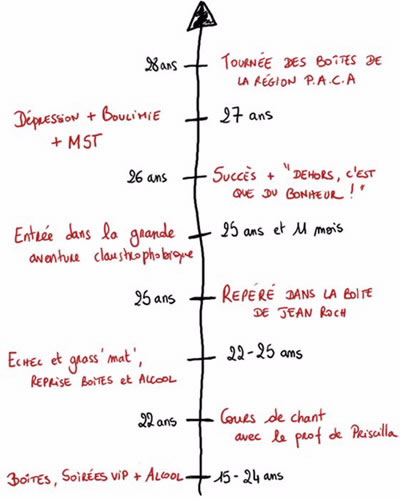 28 ans TOURNÉE DES BOÎTES DE
LA RÉGION P.A.C.A
DÉPRESSION + BOULIMIE 27 ans
+ MST
26 ans SUCCÈS + "DEHORS, C'EST
QUE DU BONHEUR !"
Entrée dans la grande 25 ans et 11 mois
aventure claustrophobique
25 ans REPÉRÉ DANS LA BOITE
DE JEAN ROCH
ECHEC et grass' mat', 22-25 ans
REPRISE BOITES et ALCOOL
22 ans Cours de chant
avec le prof de Priscilla
BOÎTES, SOIRÉES VIP + ALCOOL 15-24 ans